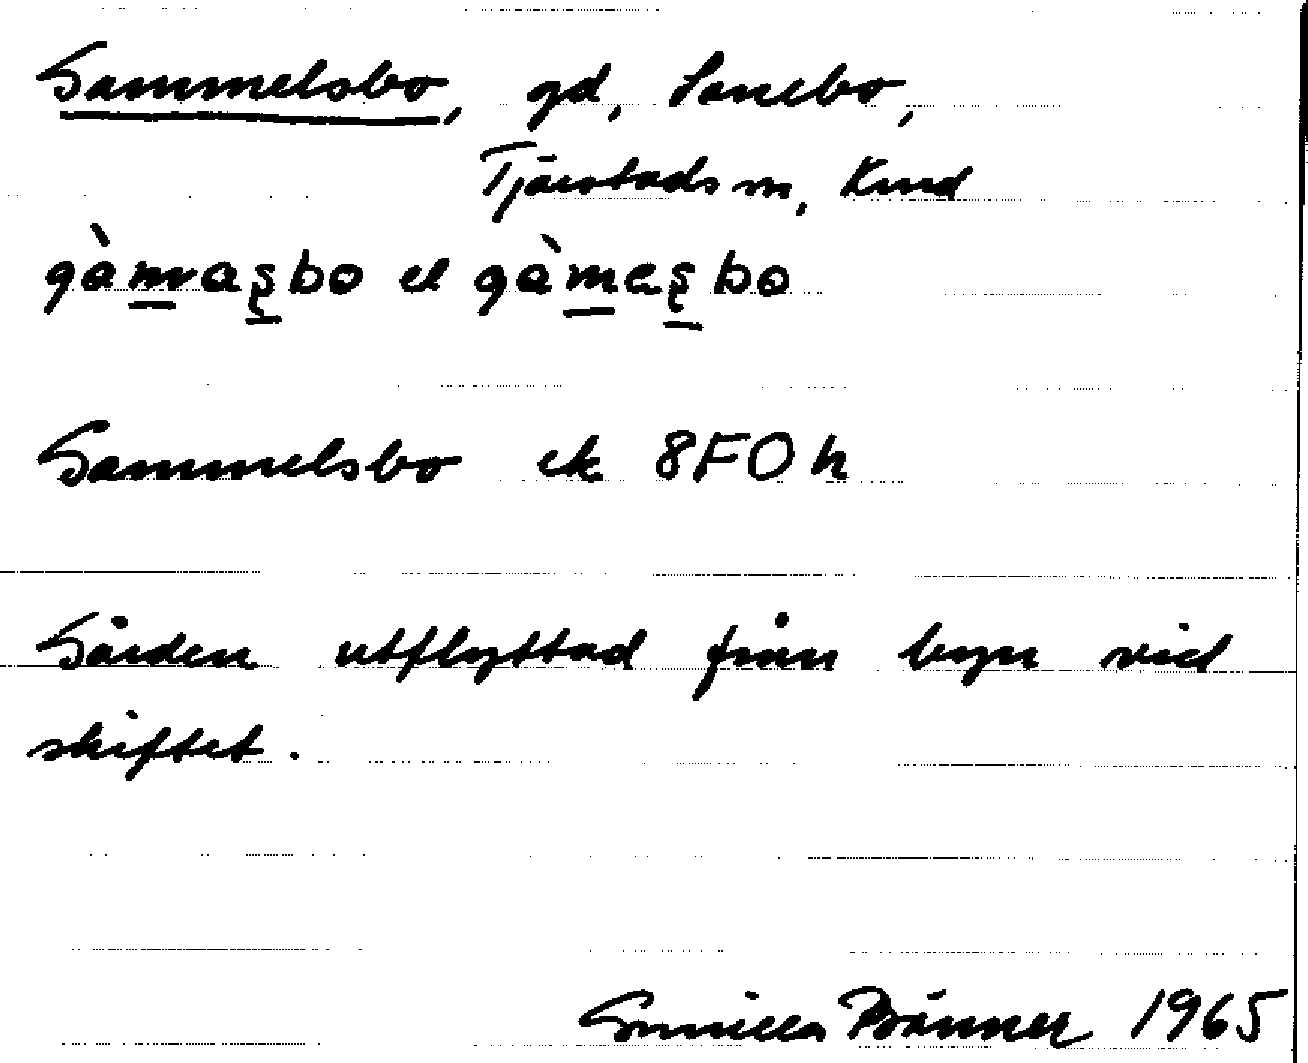 Gammelsbo, gd, Sonebo,
Tjärstads sn, Kind
gàmaʂbo el gàmeʂbo
Gammelsbo ek 8F0h
Gården utflyttad från byn vid
skiftet.
Gunilla 1965